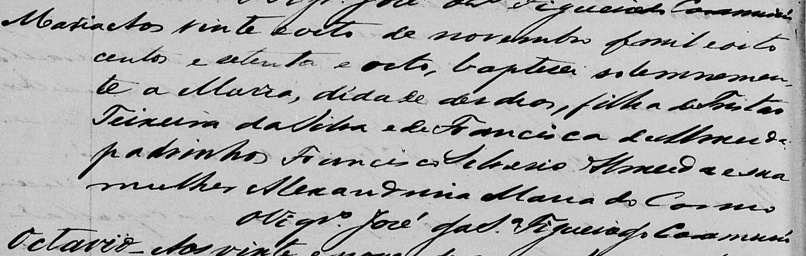 O Vigr.º José da S.ª Figueiredo Caramurú
Maria Aos vinte e oito de novembro de mil e oito
centos e setenta e oito, baptisei solemnemen-
te a Maria, d'idade de dias, filha de Tristão
Teixeira da Silva e de Francisca de Almeida
padrinhos Francisco Silverio Almeida e sua
mulher Alexandrina Maria do Carmo
O Vigr.º José da S.ª Figueiredo Caramurú
Octavio - Aos vinte e nove de